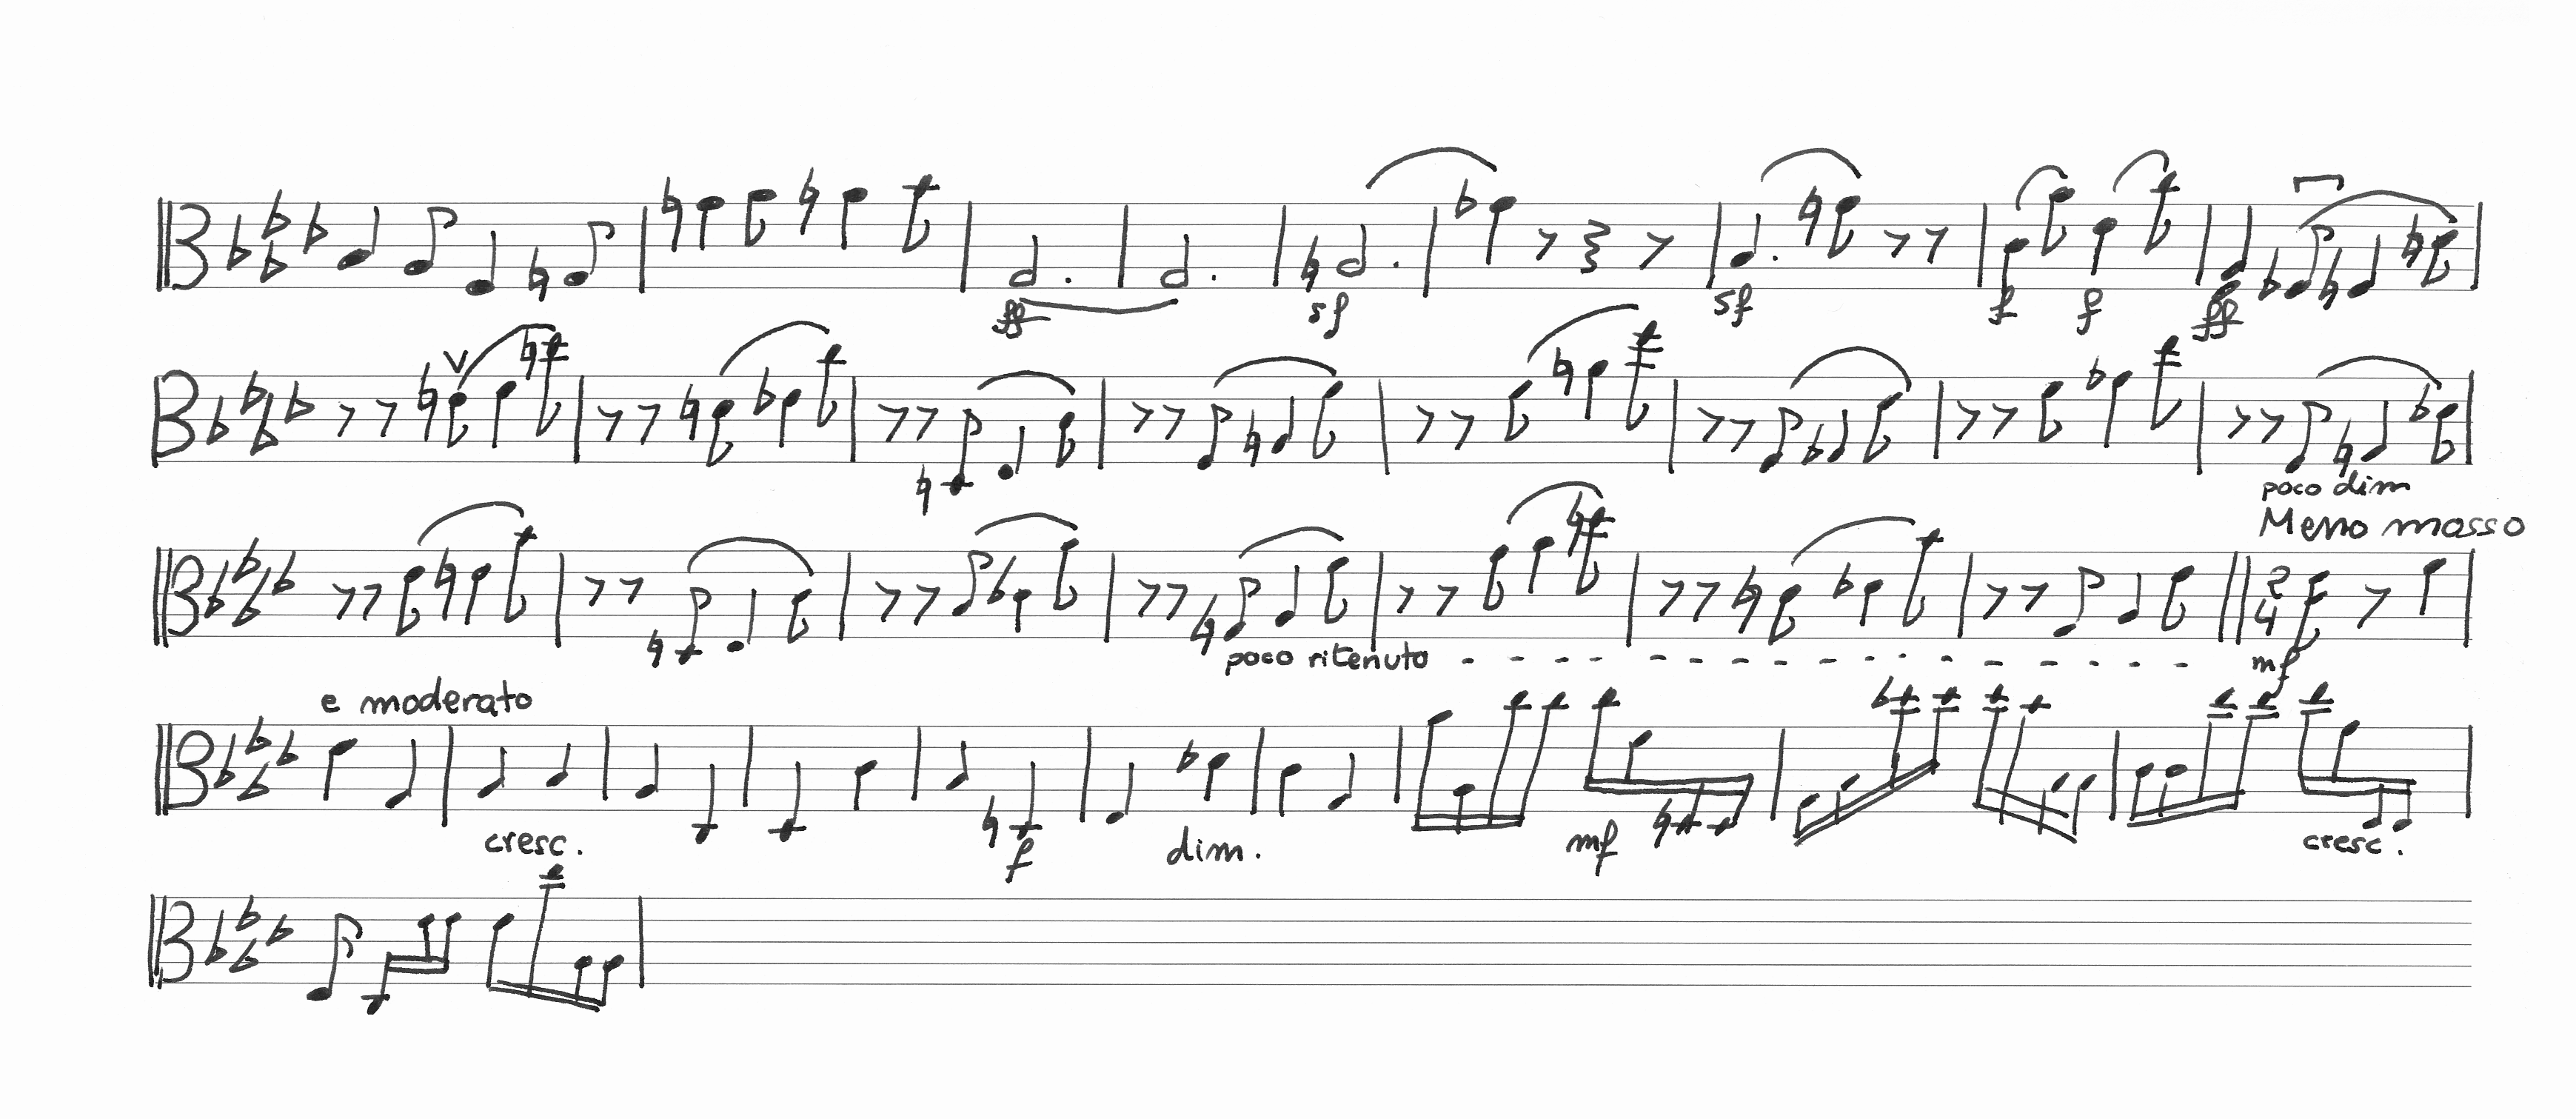 ff sf sf f f ff
poco dim
Meno mosso
poco ritenuto - - - - - - - - - - - - - - - - - -
2
4
mf
e moderato
cresc. f dim. mf cresc.